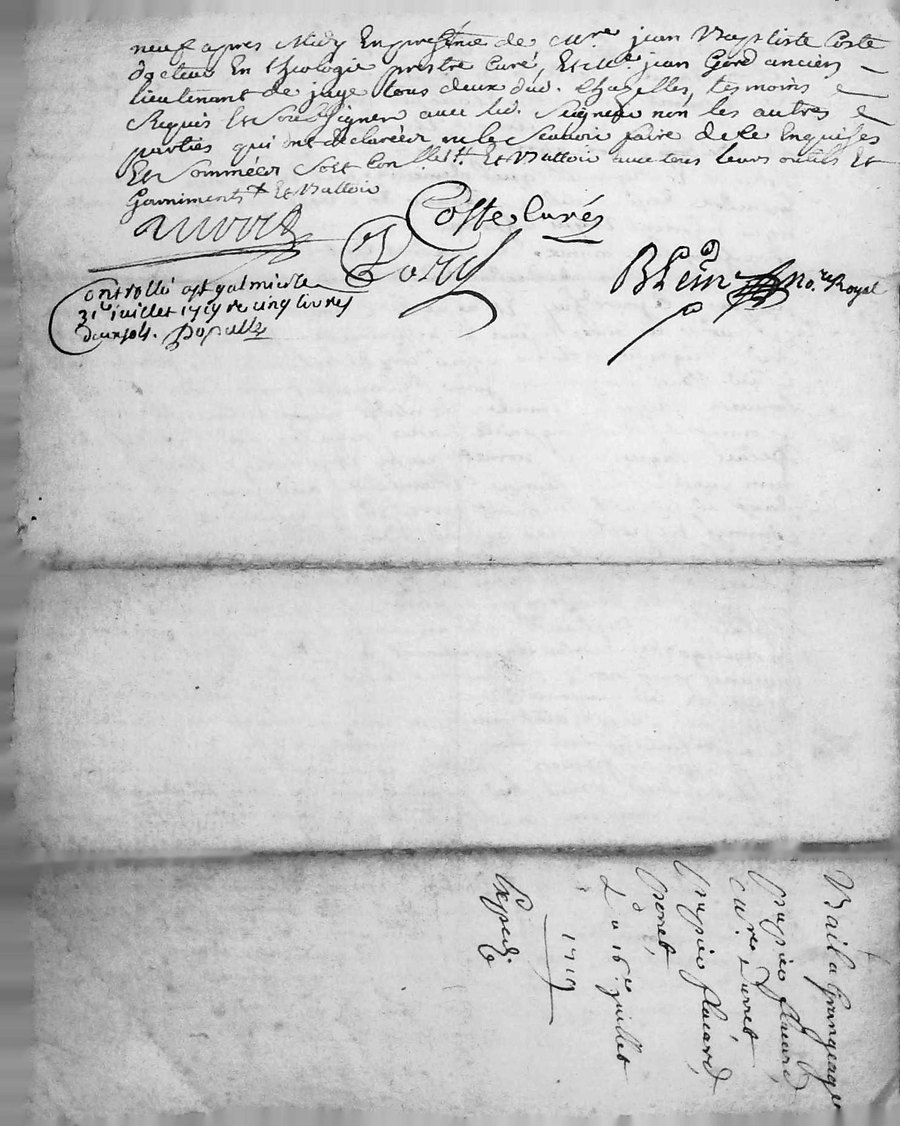 neuf apres Midy En presence de Me jean Baptiste Coste
docteur En theologie prestre Curé, Et Me jean Gord ancien
lieutenant de juge tous deux dud. Chazelles, tesmoins
Requis Et Soussignen avec led. Seigneur non les autres
parties qui ont declareér ne le Scavoir faire de ce Enquises
Et Sommeér Et Battoir avec tous leurs outils Et
Garniments Et Battoir
Coste Curés
Gord
BLein No.re Royal
Controllé a St galmier le
31e juillet 1719 re cinq livres
deux sols.
Bail a Grangeage
papier
Me Murret
papier
Ponet
Du 16e juillet
1719
Expedié